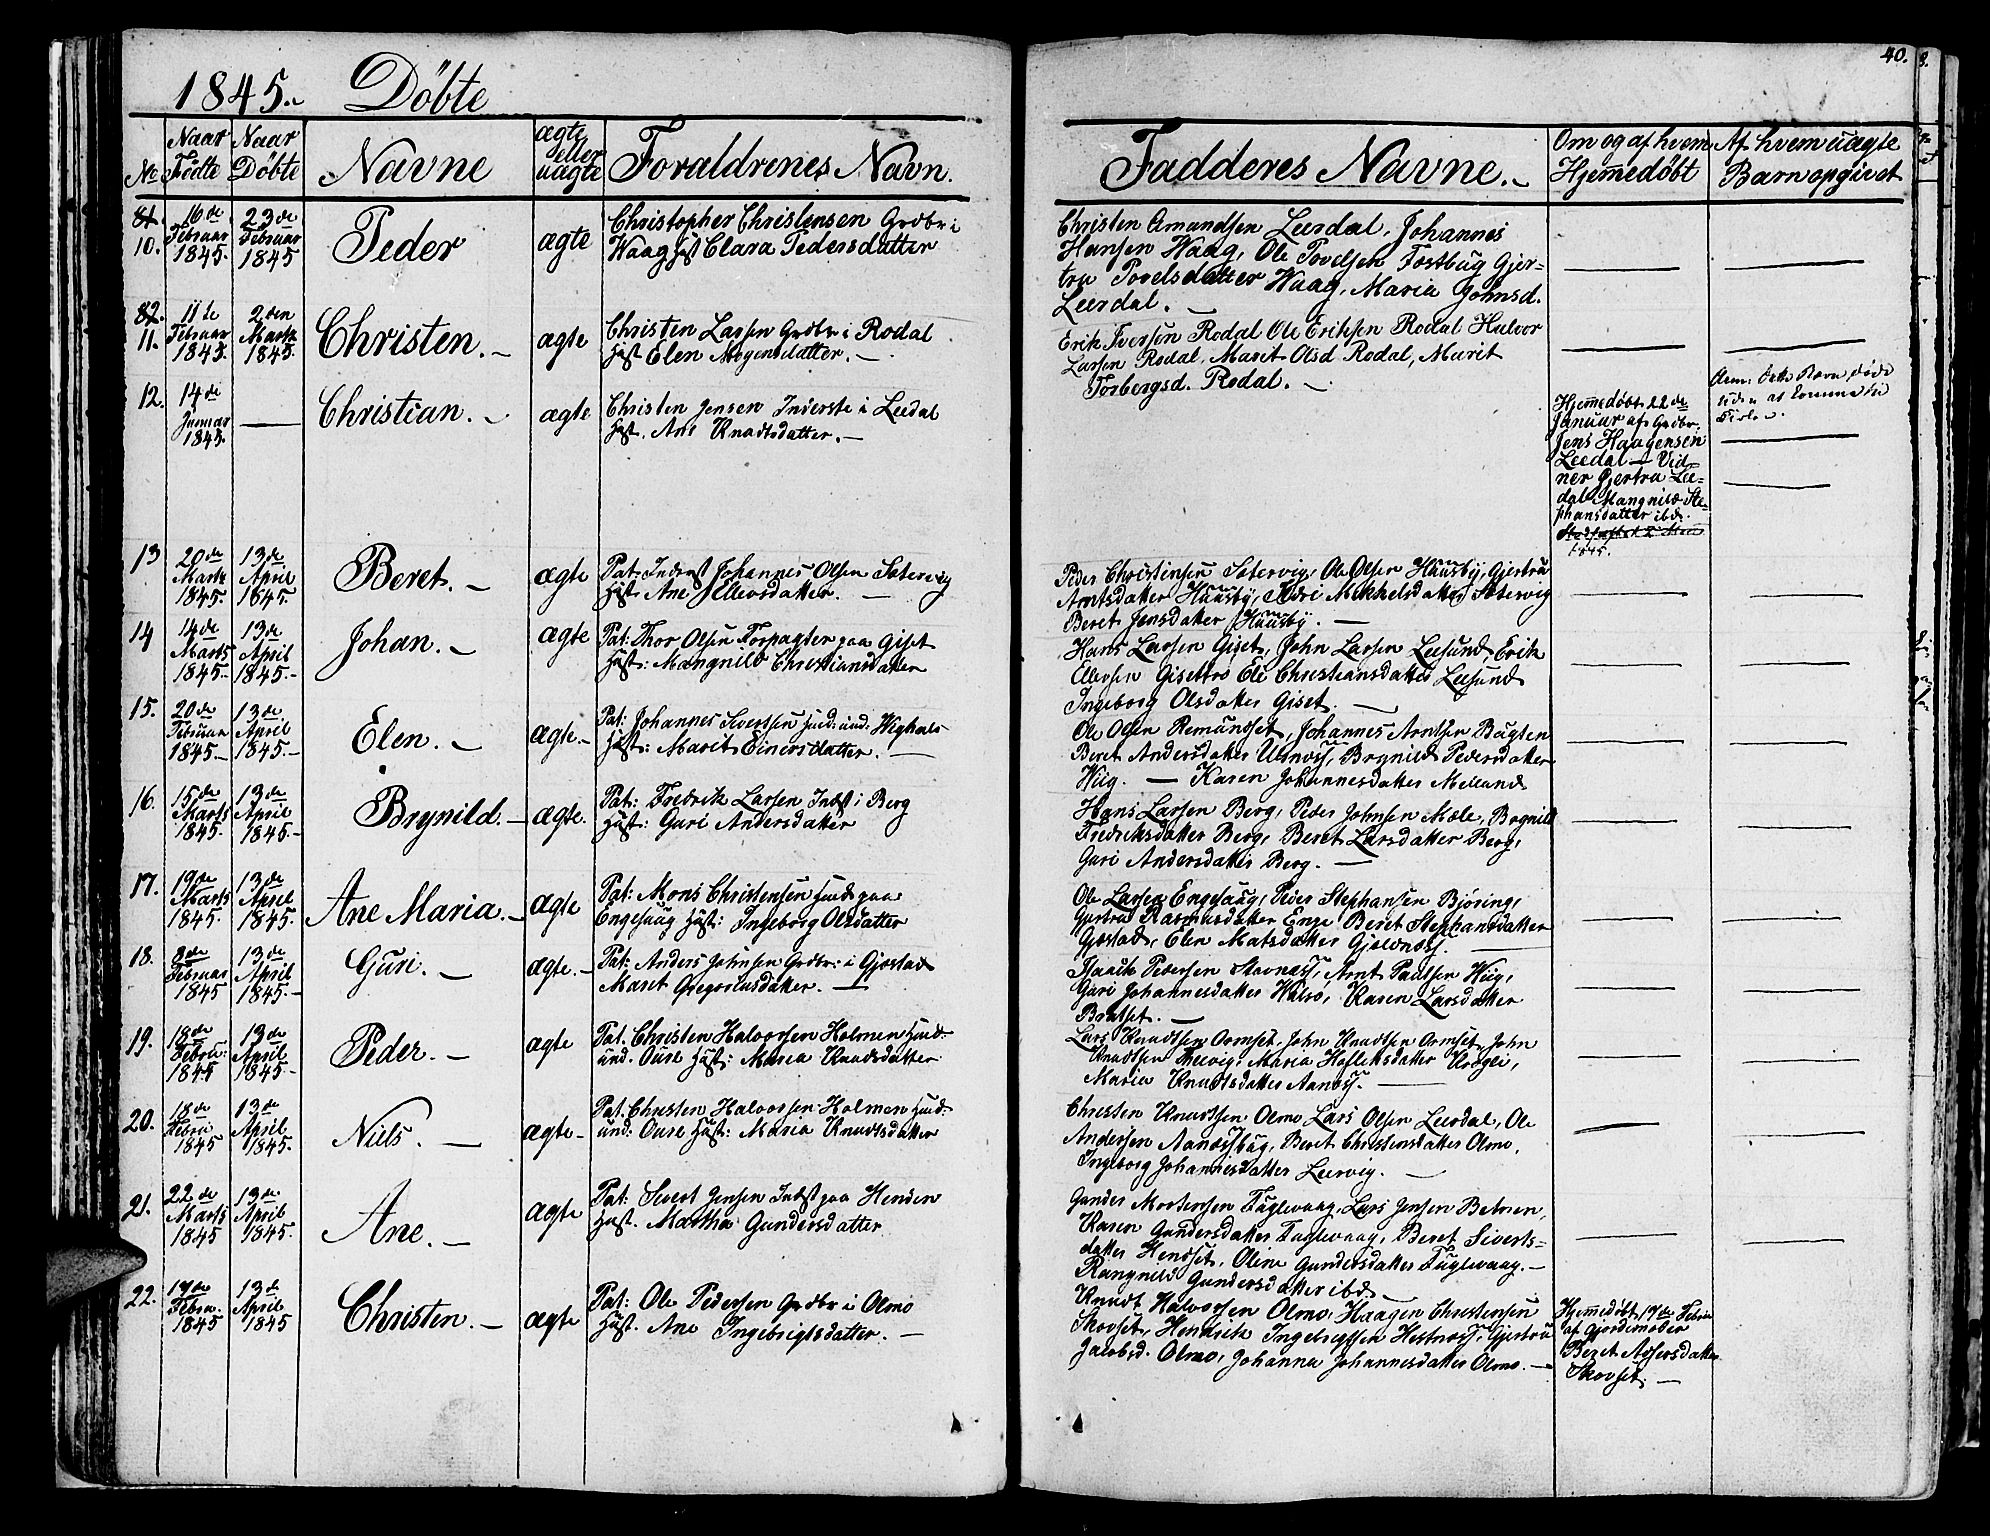 1845. Döbte
40.
No
Naar Födte
Naar Döbte
Navne
ægte eller uægte
Forældrenes Navn.
Fadderes Navne.
Om og af hvem Hjemmedöbt
Af hvem uægte Barn opgivet
81. 10.
16de Februar 1845.
23de Februar 1845
Peder
ægte
Christopher Christensen Grdbr i
Waag Hust Clara Pedersdatter
Christen Amundsen Leerdal, Johannes
Hansen Waag, Ole Povelsen Fostbug Gjer=
tru Povelsdatter Waag, Maria Johnsd.
Leerdal.
82. 11.
11te Februar 1845.
2den Marts 1845.
Christen.
ægte
Christen Larsen Grdbr i Rodal
Hust Elen Mogensdatter.
Erik Iversen Rodal Ole Eriksen Rodal Halvor
Larsen Rodal, Marit Olsd Rodal, Marit
Torbergsd. Rodal.
12.
14de Januar 1845.
Christian.
ægte
Christen Jensen Inderste i Leedal
Hust. Ane Knudtsdatter.
Hjemmedöbt 22de
Januar af Grdbr.
Jens Haagensen
Leedal — Vid=
ner Gjertru Lee=
dal Mangnild Ste=
phansdatter ibd.
1845.
Anm: Dette Barn döde
uden at komme til
Kirken.
13
20de Marts 1845.
13de April 1845.
Beret.
ægte
Pat: Inderst Johannes Olsen Satervig
Hust. Ane Ellevsdatter.
Peder Christensen Satervig, Ole Olsen Huusby, Gjertru
Arntsdatter Huusby, Mikkelsdatter Satervig
Beret Jensdatter Huusby.
14
14de Marts 1845.
13de April 1845.
Johan.
ægte
Pat: Thor Olsen Forpagter paa Giset
Hust: Mangnild Christiansdatter
Hans Larsen Giset, John Larsen Leesund, Erik
Ellevsen Gisettrö Eli Christiansdatter Leesund
Ingeborg Olsdatter Giset.
15.
20de Februar 1845.
13de April 1845.
Elen.
ægte.
Pat: Johannes Sivertsen Huusd: und:
Hust: Marit Einersdatter.
Ole Olsen Remundset, Johannes Arntsen Bugten
Beret Andersdatter Ulsnæss, Brynild Pedersdatter
Wiig. — Karen Johannesdatter Melland
16.
15de Marts 1845.
13de April 1845.
Brynild.
ægte.
Pat: Fredrik Larsen Indst i Berg
Hust: Guri Andersdatter
Hans Larsen Berg, Peder Johnsen Mæle, Brynild
Fredriksdatter Berg, Beret Larsdatter Berg,
Guri Andersdatter Berg.
17.
19de Marts 1845.
13de April 1845.
Ane Maria.
ægte
Pat: Mons Christensen Huusd paa
Engesaug Hust: Ingeborg Olsdatter
Ole Larsen Engesaug, Peder Stephansen Björing,
Gjertru Rasmusdatter Enge Beret Stephansdatter
Gjøstad, Elen Matsdatter Gjelvnæss.
18.
8de Februar 1845
13de April 1845.
Guri.
ægte.
Pat: Anders Johnsen Grdbr: i Gjøstad
Maret Gregoriusdatter.
Isaach Pedersen Stavnæss, Arnt Paulsen Wiig,
Guri Johannesdatter Walsö, Karen Larsdatter
Bratset.
19.
18de Febru. 1845
13de April 1845.
Peder.
ægte
Pat. Christen Halvorsen Holmen Huusd:
und. Oure Hust: Maria Knudsdatter
Lars Knudtsen Ormset, John Knudtsen Ormset, John
Knudtsen Maria Krogli,
Maria Knudtsdatter Aanæss.
20.
18de Febru 1845
13de April 1845.
Niels.
ægte
Pat. Christen Halvorsen Holmen Huusd:
und: Oure Hust: Maria Knudtsdatter
Christen Knudtsen Olmo Lars Olsen Leerdal, Ole
Andersen Aanæssbug, Beret Christensdatter Olmo,
Ingeborg Johannisdatter Leervig.
21.
22de Marts 1845
13de April 1845.
Ane.
ægte
Pat: Sivert Jensen Indst paa Henden
Hust. Martha Gundersdatter
Gunder Mortensen Fuglevaag, Lars Jensen
Karen Gundersdatter Fuglevaag, Beret Siverts=
datter Hendset, Oline Gundersdatter Fuglevaag.
Rangnild Gundersdatter ibd.
22.
17de Febru. 1845
13de April 1845
Christen.
ægte
Pat: Ole Pedersen Grdbr i Olmo
Hust. Ane Ingebrigtsdatter.
Knudt Halvorsen Olmo, Haagen Christensen
Skovset, Hendrik Ingebrigtsen Hestnæss, Gjertru
Jacobsd. Olmo, Johanna Johannesdatter Olmo.
Hjemmedöbt 17de Febru
af Gjordemoder
Beret Assersdatter
Skovset.